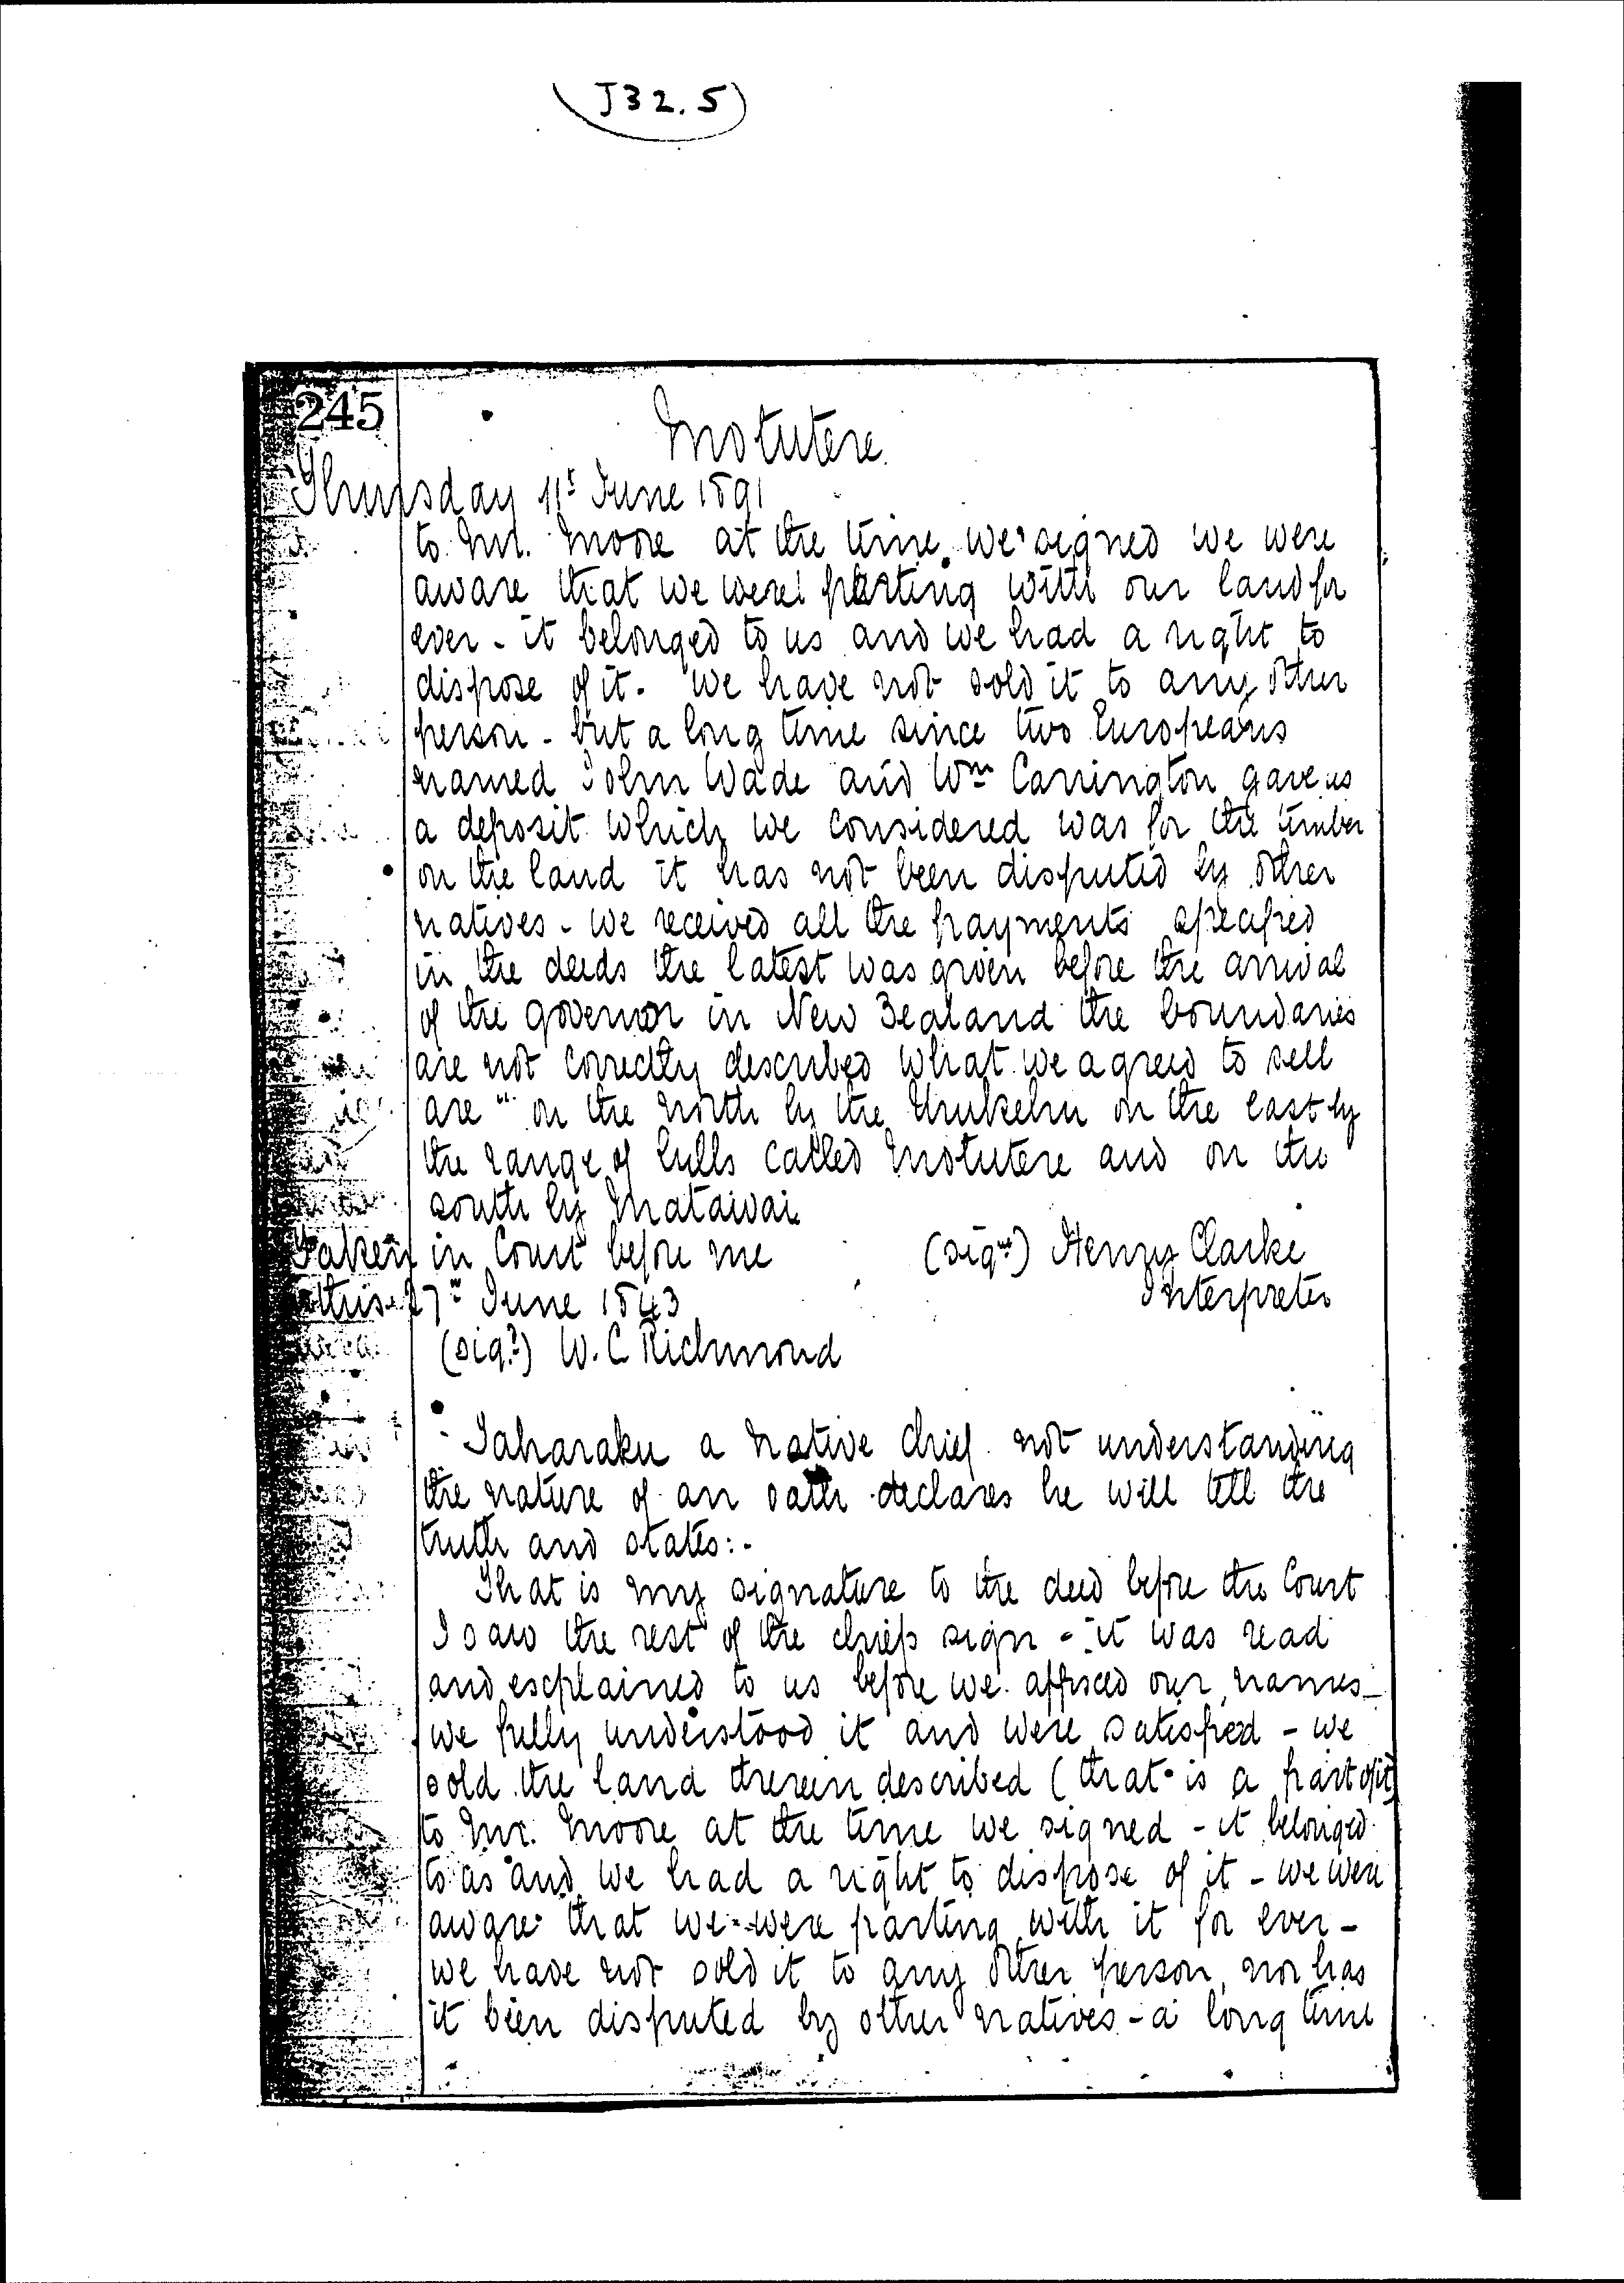 J32.5
245
Motutere
Thursday 11th June 1891
to Mr. Moore at the time we signed we were
aware that we were parting with our land for
ever - it belonged to us and we had a right to
dispose of it. We have not sold it to any other
person - but a long time since two Europeans
named John Wade and Wm Carrington gave us
a deposit which we considered was for the timber
on the land it has not been disputed by other
natives - we received all the payments specified
in the deeds the latest was given before the arrival
of the governor in New Zealand the boundaries
are not correctly described what we agreed to sell
are " on the north by the on the east by
the range of hills called Motutere and on the
south by Matawai
Taken in Court before me (sigd) Henry Clarke
this 27th June 1843 Interpreter
(sigd) W. C. Richmond
Taharaku a Native Chief not understanding
the nature of an oath declares he will tell the
truth and states:-
That is my signature to the deed before the Court
I saw the rest of the chiefs sign - it was read
and explained to us before we affixed our names -
we fully understood it and were satisfied - we
sold the land therein described (that is a part of it)
to Mr. Moore at the time we signed - it belonged
to us and we had a right to dispose of it - we were
aware that we were parting with it for ever -
we have not sold it to any other person, nor has
it been disputed by other natives - a long time